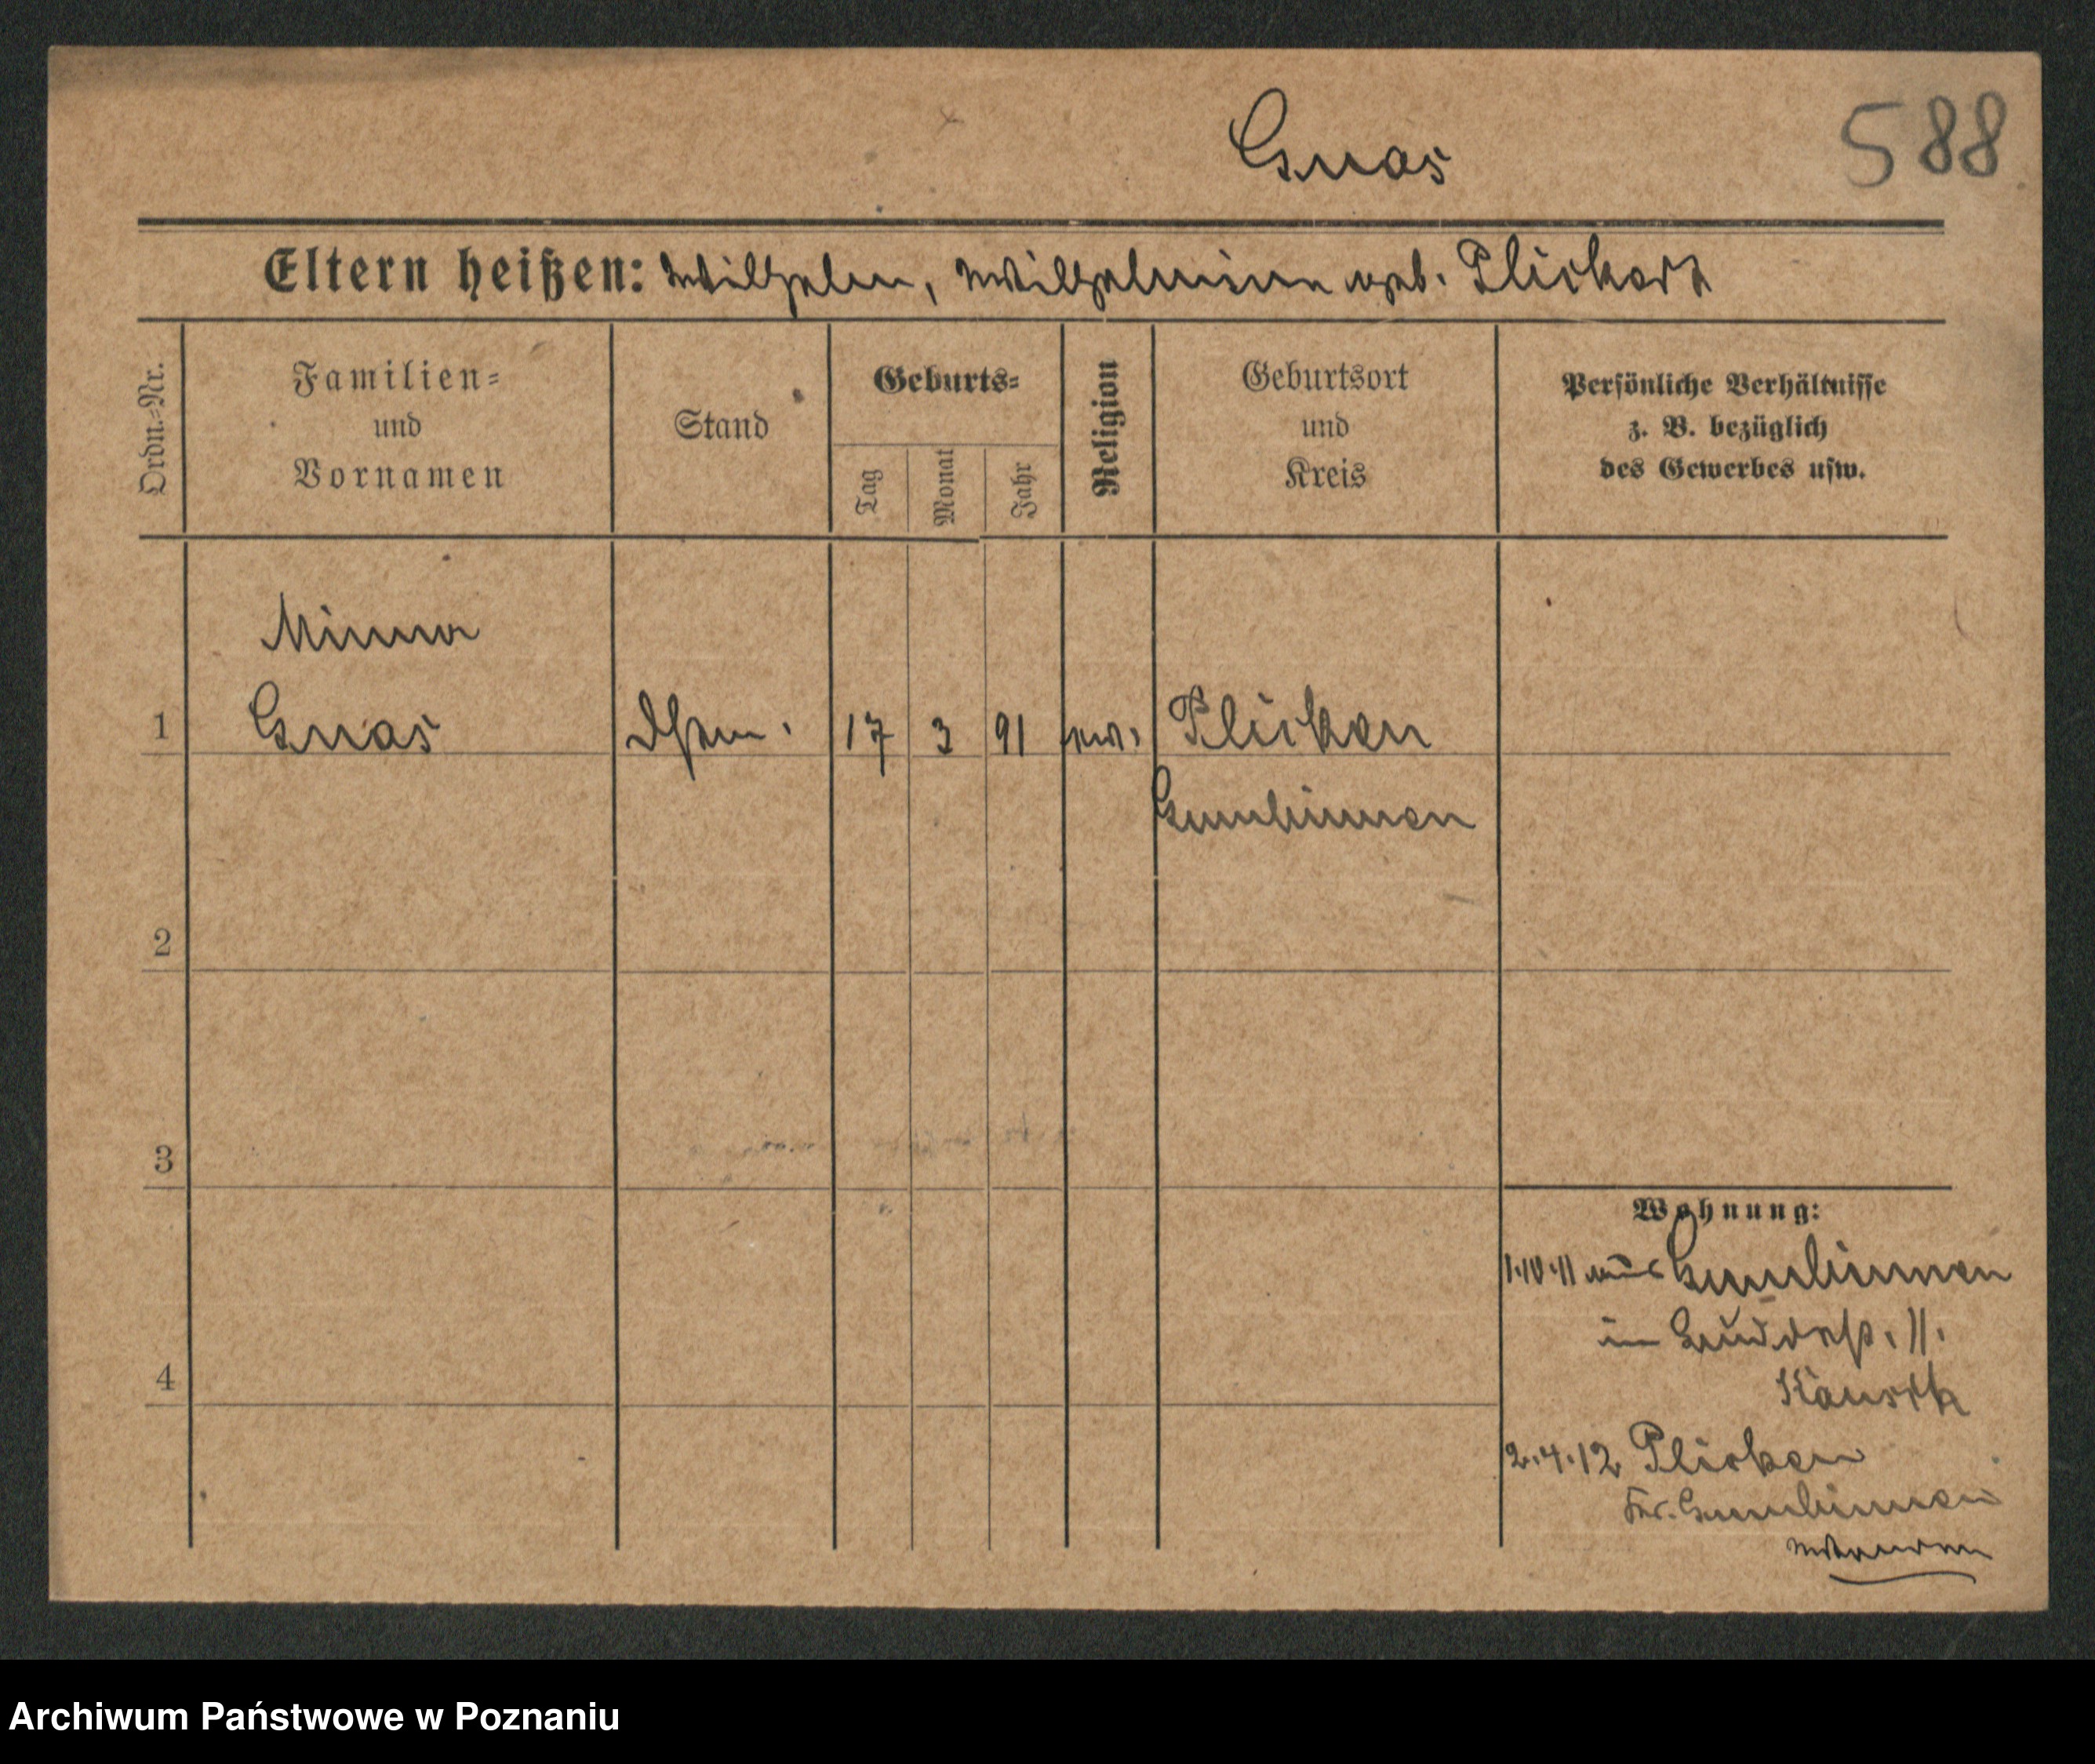 Gnas
588
Eltern heißen: Wilhelm, Wilhelmine geb. Plickert
Ordn.=Nr.
Familien=
und
Vornamen
Stand
Geburts=
Tag
Monat
Jahr
Religion
Geburtsort
und
Kreis
Persönliche Verhältnisse
z. B. bezüglich
des Gewerbes usw.
Minna
1 Gnas 17 3 91 ev. Plicken
Gumbinnen
2
3
4
Wohnung:
1.10.11 aus Gumbinnen
in 11.
2.4.12 Plicken
Kr. Gumbinnen
Archiwum Państwowe w Poznaniu